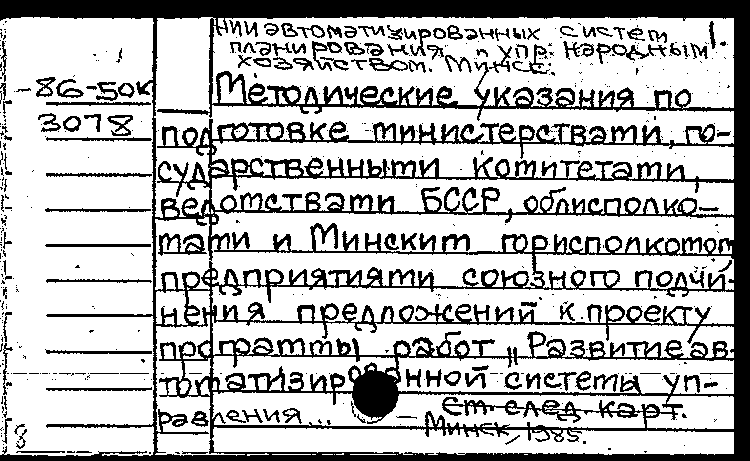 НИИ автоматизированных систем 1.
планирования и упр. народным
хозяйством. Минск.
-86-50к
3078
Методические указания по
подготовке министерствами, го-
сударственными комитетами,
ведомствами БССР, облисполко-
мами и Минским горисполкомом
предприятиями союзного подчи-
нения предложений к проекту
программы работ „Развитие ав-
томатизированной системы уп-
равления... — см. след. карт.
Минск, 1985.
8